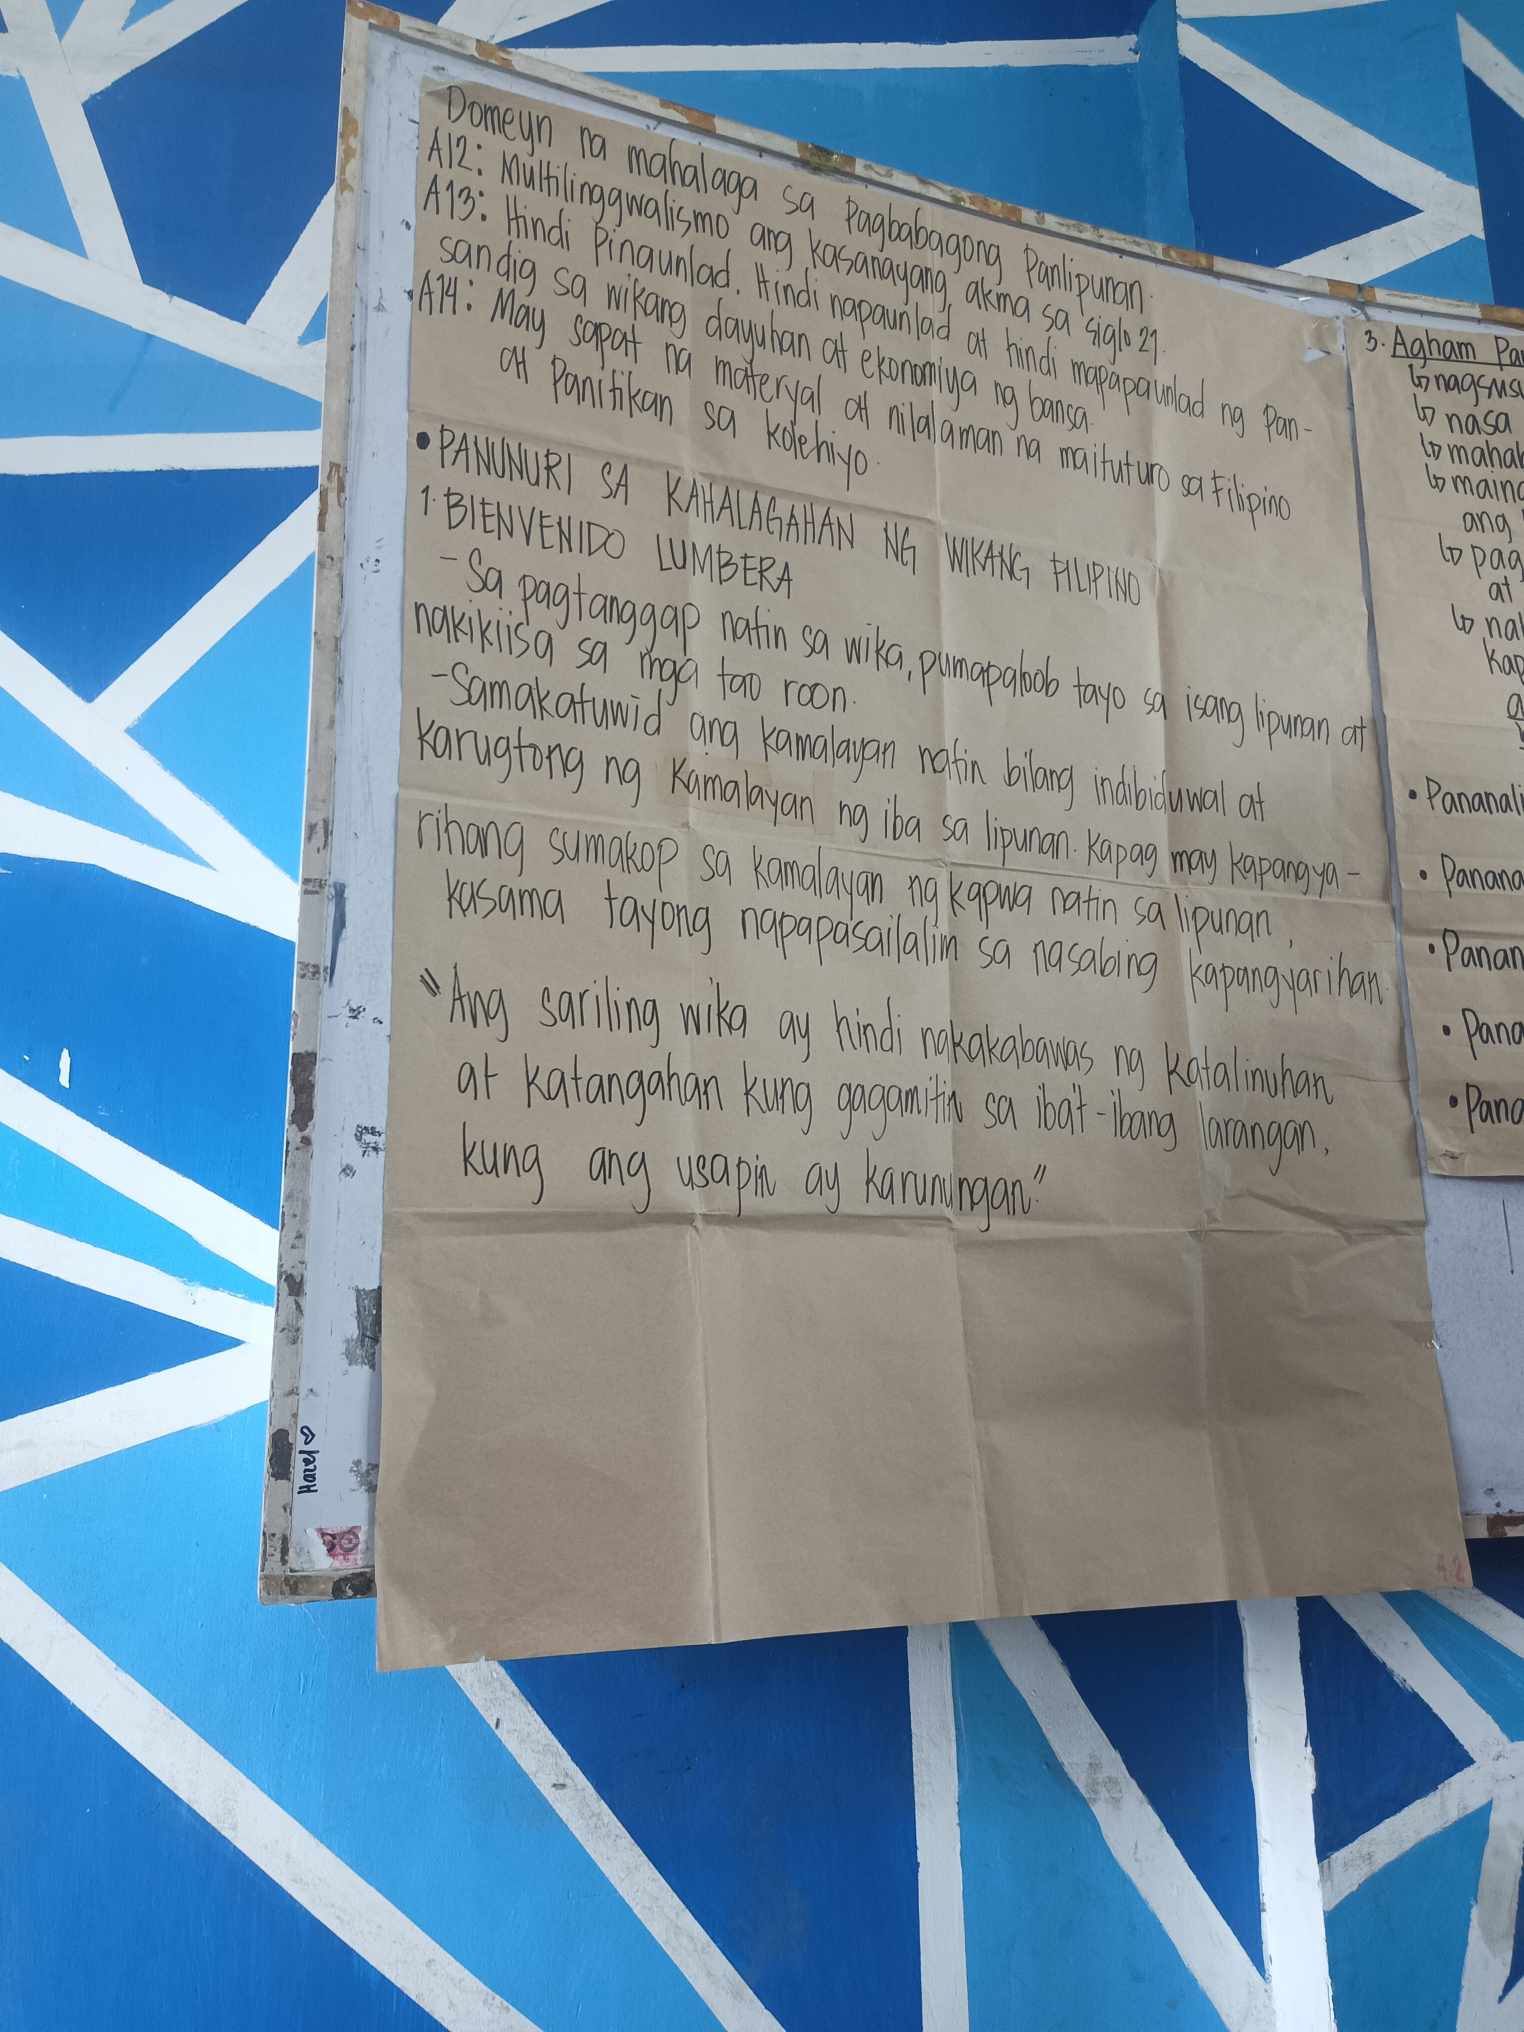 Domeyn na mahalaga sa Pagbabagong Panlipunan.
A12: Multilinggwalismo ang kasanayang, akma sa siglo 21.
A13: Hindi Pinaunlad. Hindi napaunlad at hindi mapapaunlad ng Pan-
sandig sa wikang dayuhan at ekonomiya ng bansa.
A14: May sapat na materyal at nilalaman na maituturo sa Filipino
at Panitikan sa kolehiyo.
• PANUNURI SA KAHALAGAHAN NG WIKANG FILIPINO
1. BIENVENIDO LUMBERA
- Sa pagtanggap natin sa wika, pumapaloob tayo sa isang lipunan at
nakikiisa sa mga tao roon.
- Samakatuwid ang kamalayan natin bilang indibiduwal at
karugtong ng kamalayan ng iba sa lipunan. Kapag may kapangya-
rihang sumakop sa kamalayan ng kapwa natin sa lipunan,
kasama tayong napapasailalim sa nasabing kapangyarihan.
"Ang sariling wika ay hindi nakakabawas ng katalinuhan
at katangahan kung gagamitin sa iba't-ibang larangan,
kung ang usapin ay karunungan"
3. Agham
↳ nasa
ang
at
• 
Hazel ♡